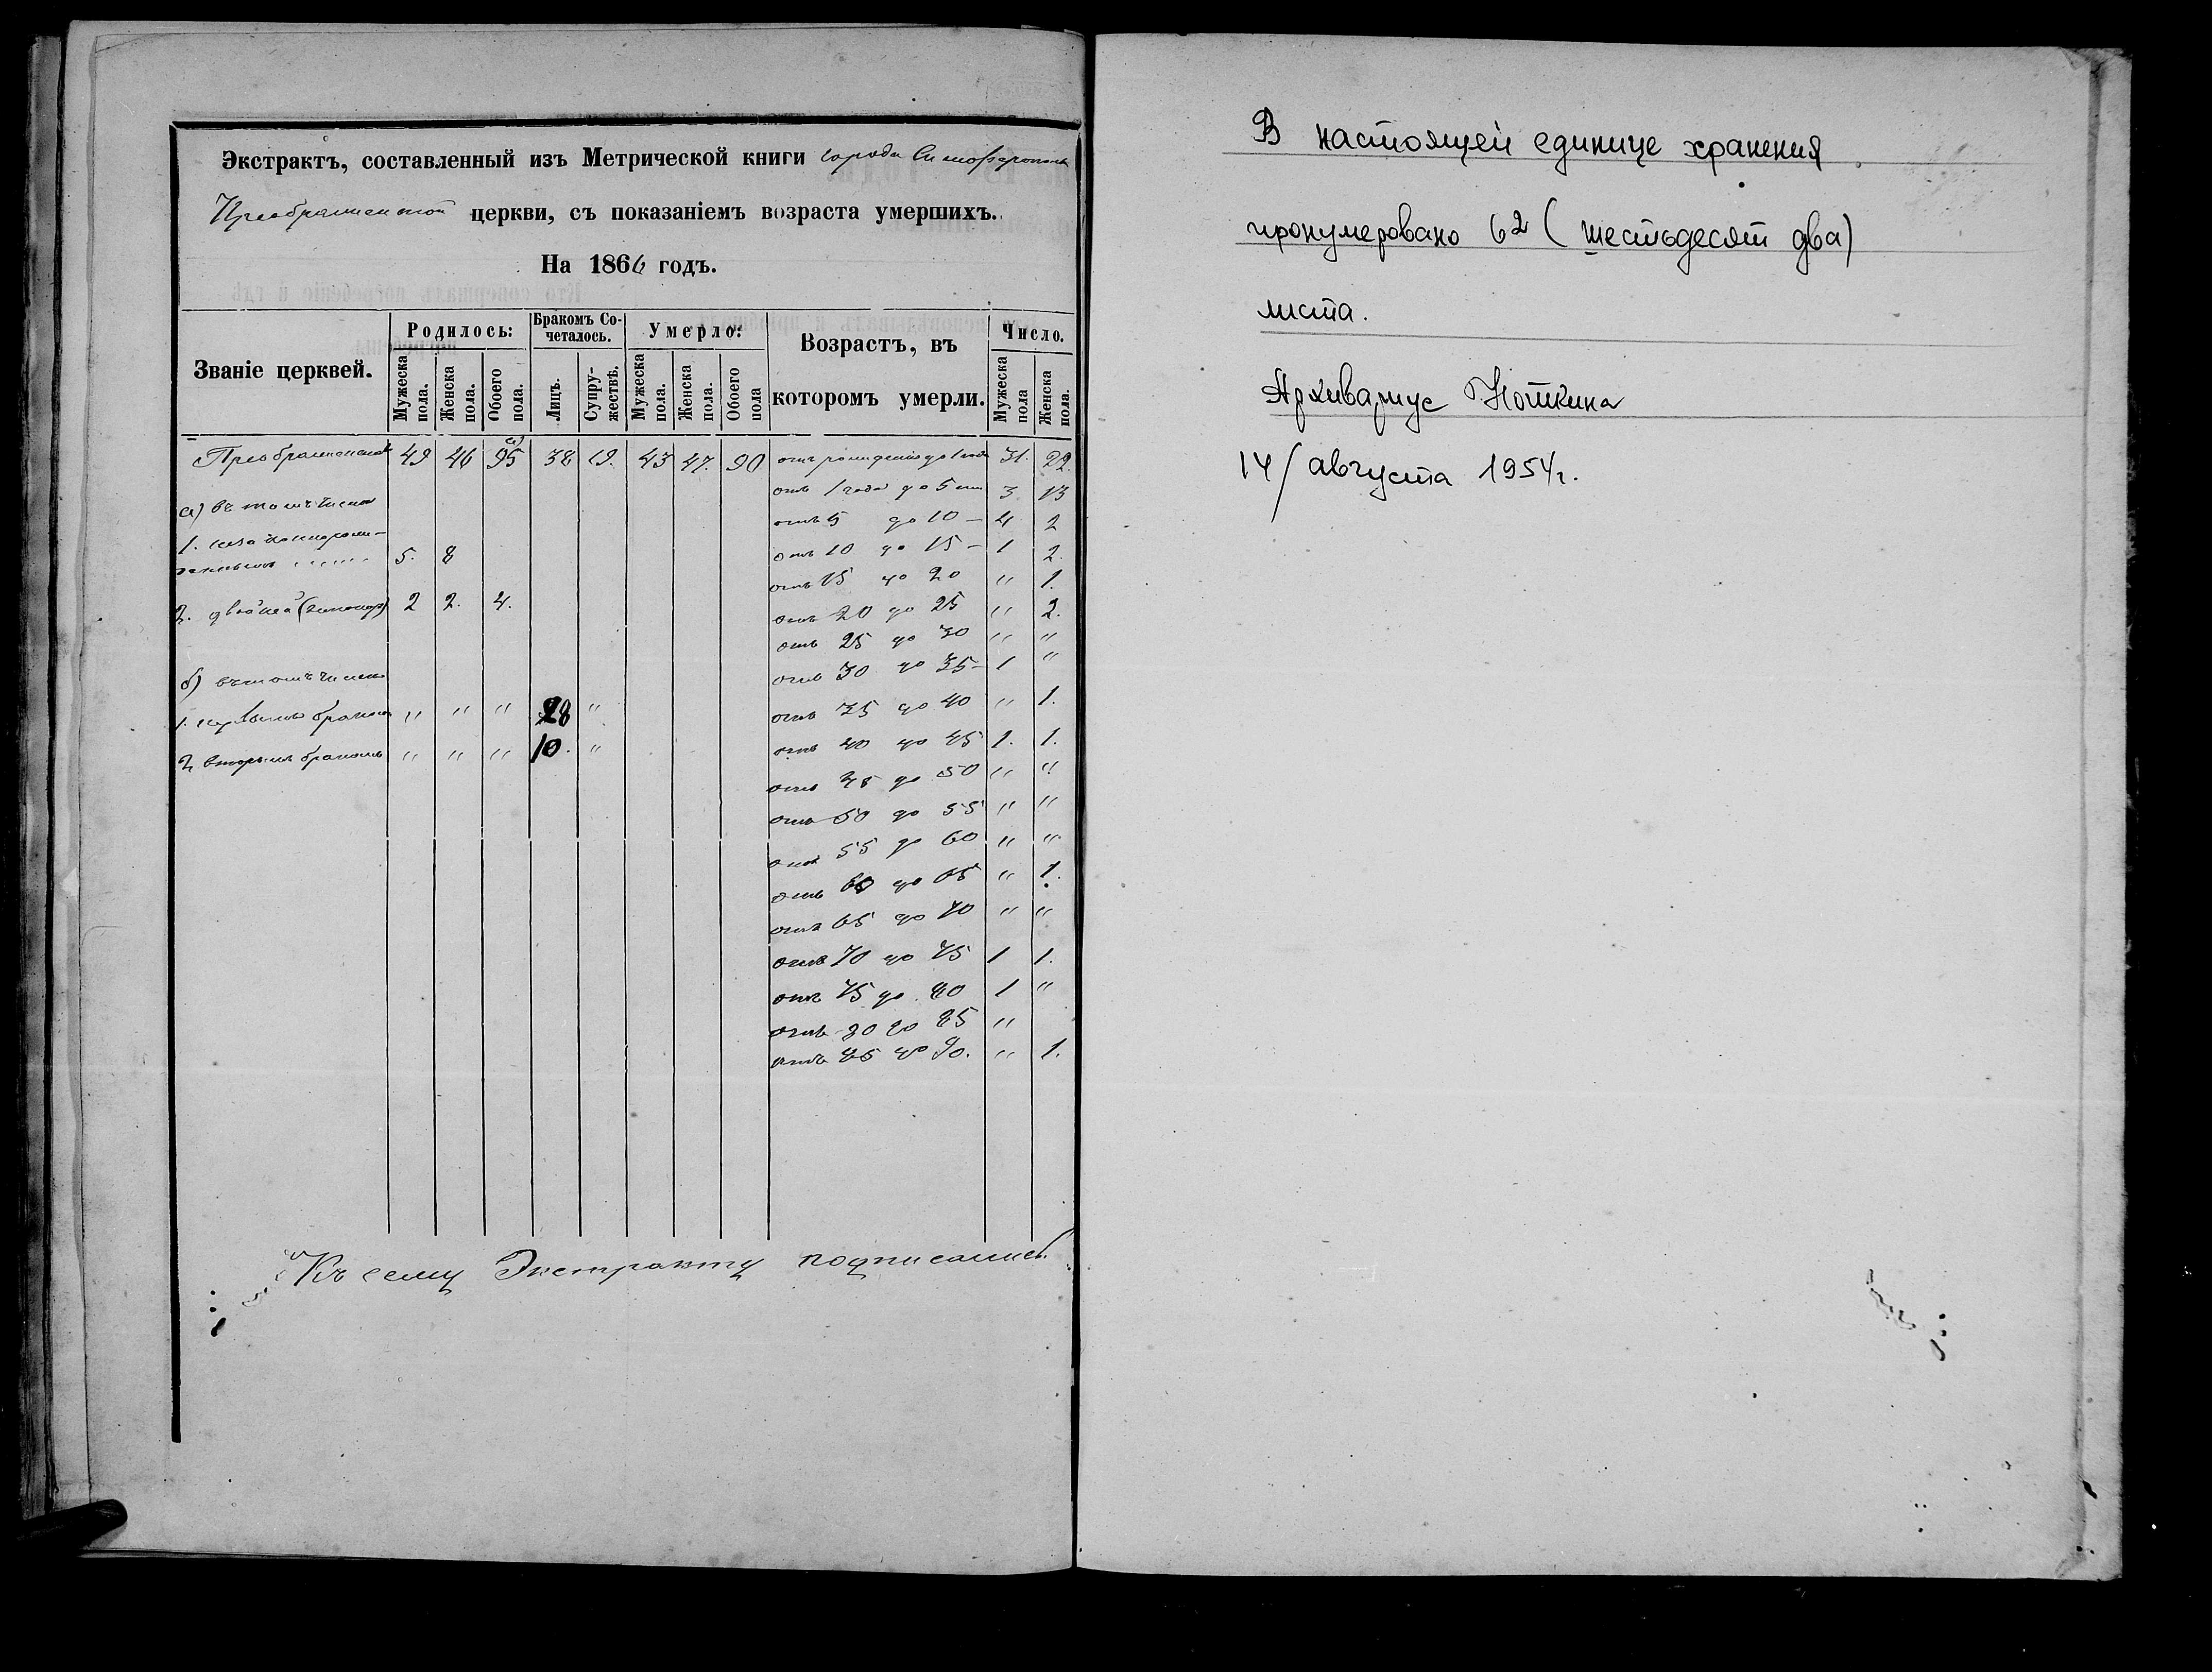 Экстрактъ, составленный изъ Метрической книги города Симферополя
Преображенской церкви, съ показаніемъ возраста умершихъ.
На 1866 годъ.
Званіе церквей.
Родилось:
Мужеска пола.
Женска пола.
Обоего пола.
Бракомъ Сочеталось.
Лицъ.
Супружествъ.
Умерло:
Мужеска пола.
Женска пола.
Обоего пола
Возрастъ, въ
которомъ умерли.
Число.
Мужеска пола
Женска пола.
Преображенской 49 46 95 а) 38 19. 43 47. 90 отъ рожденія до 1 года 31. 22.
отъ 1 года до 5 лет 3 13
а) въ томъ числе
отъ 5 до 10 — 4 2
1. незаконнорож-
отъ 10 до 15 — 1 2.
денныхъ 5. 8
отъ 15 до 20 " 1.
2. двойни 2 2. 4.
отъ 20 до 25 " 2.
отъ 25 до 30 " "
отъ 30 до 35 — 1 "
б) въ томъ числе
1. первымъ бракомъ " " " 28 "
отъ 35 до 40 " 1.
2. вторымъ бракомъ " " " 10. "
отъ 40 до 45 1. 1.
отъ 45 до 50 " "
отъ 50 до 55 " "
отъ 55 до 60 " "
отъ 60 до 65 " 1.
отъ 65 до 70 " "
отъ 70 до 75 1 1.
отъ 75 до 80 1 "
отъ 80 до 85 "
отъ 85 до 90. " 1.
Къ сему Экстракту подписались
В настоящей единице хранения
пронумеровано 62 (шестьдесят два)
листа.
Архивариус Ноткина
14/августа 1954г.